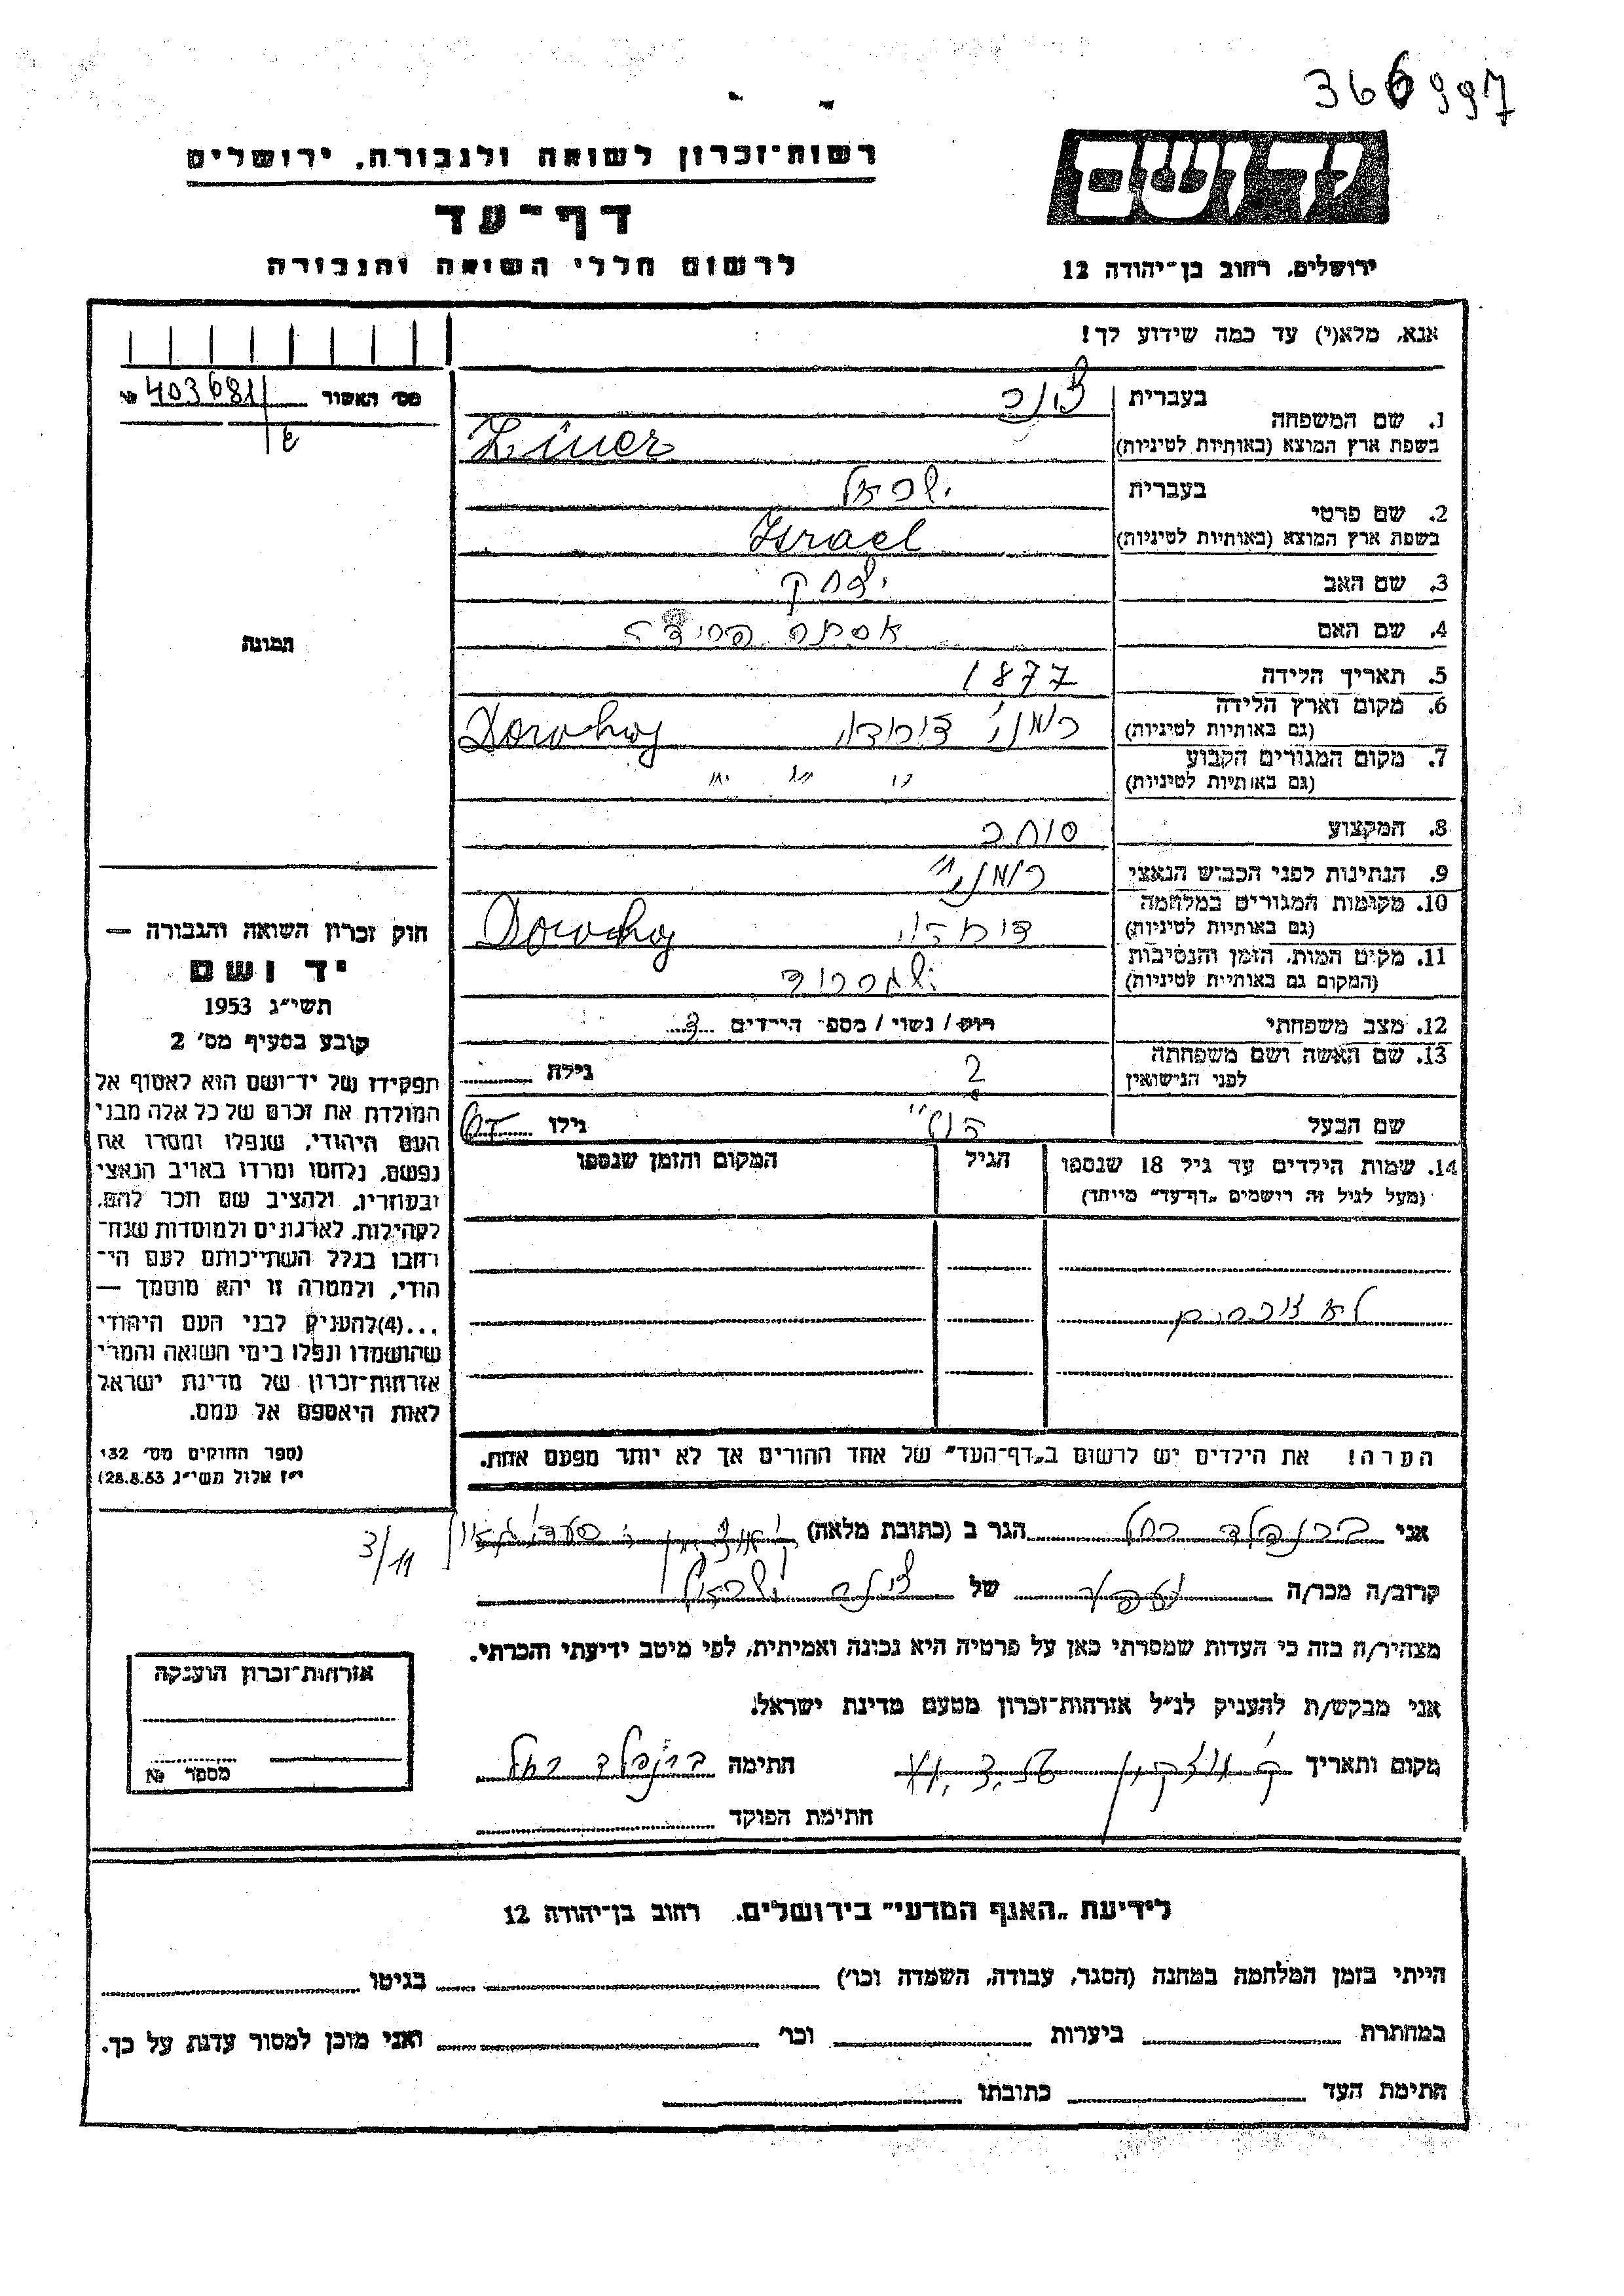 366997
רשות־זכרון לשואה ולגבורה, ירושלים
יד ושם
דף־עד
לרשום חללי השואה והגבורה
ירושלים, רחוב בן־יהודה 12
אנא, מלא(י) עד כמה שידוע לך!
מס׳ האשור 403681 №
1. שם המשפחה
בעברית
בשפת ארץ המוצא (באותיות לטיניות) Ziner
2. שם פרטי
בעברית ישראל
בשפת ארץ המוצא (באותיות לטיניות) Israel
3. שם האב יצחק
4. שם האם אסתר
5. תאריך הלידה 1877
6. מקום וארץ הלידה
(גם באותיות לטיניות) Dorohoy
7. מקום המגורים הקבוע
(גם באותיות לטיניות)
8. המקצוע סוחר
9. הנתינות לפני הכבוש הנאצי
10. מקומות המגורים במלחמה
(גם באותיות לטיניות) Dorohoy
11. מקום המות, הזמן והנסיבות
(המקום גם באותיות לטיניות)
12. מצב משפחתי רוק / נשוי / מספר הילדים
13. שם האשה ושם משפחתה
לפני הנישואין ? גילה
שם הבעל גילו
14. שמות הילדים עד גיל 18 שנספו הגיל המקום והזמן שנספו
(מעל לגיל זה רושמים „דף־עד״ מיוחד)
לא
הערה! את הילדים יש לרשום ב„דף־העד״ של אחד ההורים אך לא יותר מפעם אחת.
התמונה
חוק זכרון השואה והגבורה —
יד ושם
תשי״ג 1953
קובע בסעיף מס׳ 2
תפקידו של יד־ושם הוא לאסוף אל
המולדת את זכרם של כל אלה מבני
העם היהודי, שנפלו ומסרו את
נפשם, נלחמו ומרדו באויב הנאצי
ובעוזריו, ולהציב שם וזכר להם,
לקהילות, לארגונים ולמוסדות שנח־
רבו בגלל השתייכותם לעם הי־
הודי, ולמטרה זו יהא מוסמך —
...(4)להעניק לבני העם היהודי
שהושמדו ונפלו בימי השואה והמרי
אזרחות־זכרון של מדינת ישראל
לאות היאספם אל עמם.
(ספר החוקים מס׳ 132
י״ז אלול תשי״ג 28.8.53)
אני רחל הגר ב (כתובת מלאה)
3/11
קרוב/ה מכר/ה של ישראל
מצהיר/ה בזה כי העדות שמסרתי כאן על פרטיה היא נכונה ואמיתית, לפי מיטב ידיעתי והכרתי.
אני מבקש/ת להעניק לנ״ל אזרחות־זכרון מטעם מדינת ישראל.
מקום ותאריך חתימה רחל
חתימת הפוקד
אזרחות־זכרון הוענקה
מספר №
לידיעת „האגף המדעי״ בירושלים. רחוב בן־יהודה 12
הייתי בזמן המלחמה במחנה (הסגר, עבודה, השמדה וכו׳) בגיטו
במחתרת ביערות וכו׳ ואני מוכן למסור עדות על כך.
חתימת העד כתובתו